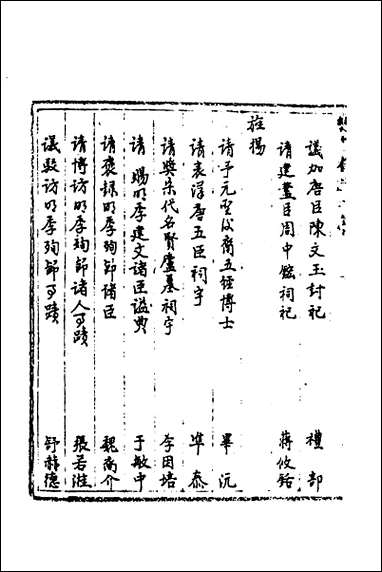 議加唐臣陳文玉封祀 禮部
請建藎臣周中鋐祠祀 蔣攸銛
旌揚
請予元聖後裔五經博士 畢沅
請表浮唐五臣祠宇 準泰
請獎宋代名賢廬墓祠宇 李因培
請賜明季建文諸臣諡典 于敏中
請褒錄明季殉節諸臣 魏裔介
請博訪明季殉節諸人事蹟 張若淮
議敷訪明季殉節事蹟 舒赫德